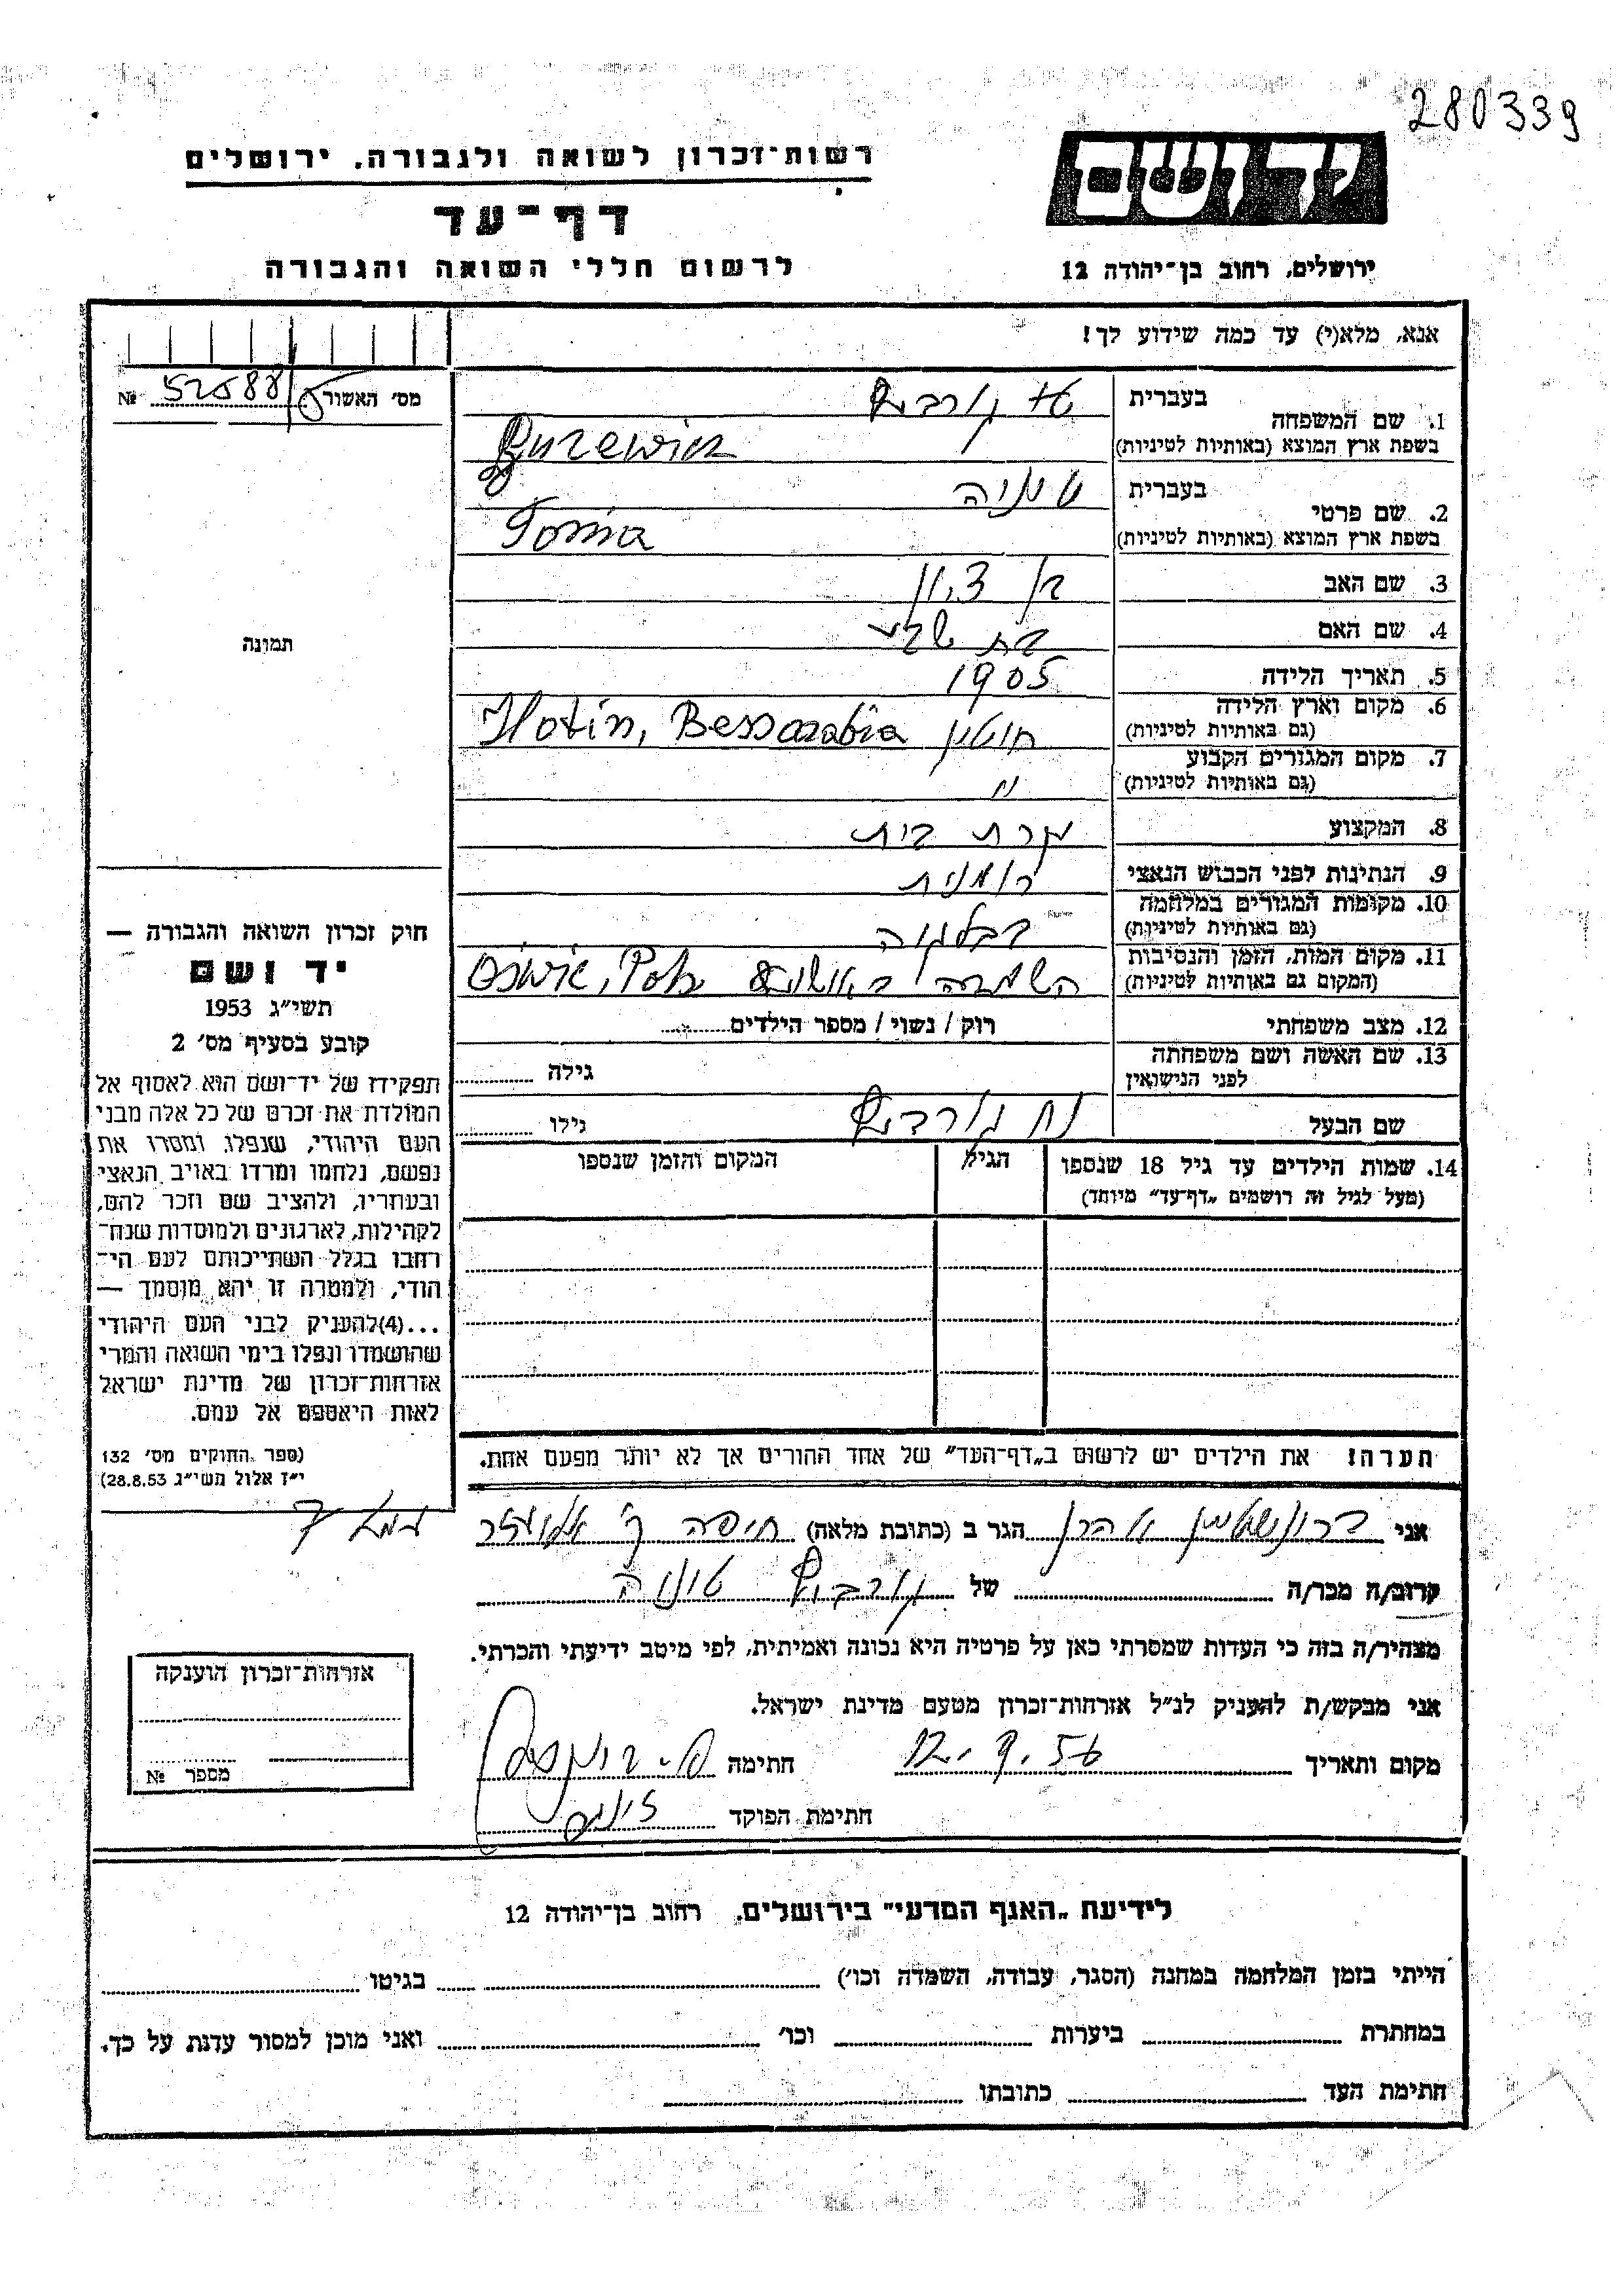 280339
רשות־זכרון לשואה ולגבורה, ירושלים
יד ושם
דף־עד
לרשום חללי השואה והגבורה
ירושלים, רחוב בן־יהודה 12
אנא, מלא(י) עד כמה שידוע לך!
מס׳ האשור 52588 №
1. שם המשפחה
בעברית
בשפת ארץ המוצא (באותיות לטיניות)
2. שם פרטי
בעברית טוניה
בשפת ארץ המוצא (באותיות לטיניות) Tonia
3. שם האב בן ציון
4. שם האם בת שבע
5. תאריך הלידה 1905
6. מקום וארץ הלידה
(גם באותיות לטיניות) חוטין Hotin, Bessarabia
7. מקום המגורים הקבוע
(גם באותיות לטיניות) "
8. המקצוע עקרת בית
9. הנתינות לפני הכבוש הנאצי רומנית
10. מקומות המגורים במלחמה
(גם באותיות לטיניות) בבלגיה
11. מקום המות, הזמן והנסיבות
(המקום גם באותיות לטיניות) הושמדה באושוויץ
12. מצב משפחתי רוק / נשוי / מספר הילדים
13. שם האשה ושם משפחתה
לפני הנישואין גילה
שם הבעל נח גורביץ גילו
14. שמות הילדים עד גיל 18 שנספו הגיל המקום והזמן שנספו
(מעל לגיל זה רושמים „דף־עד” מיוחד)
הערה! את הילדים יש לרשום ב„דף־העד” של אחד ההורים אך לא יותר מפעם אחת.
תמונה
חוק זכרון השואה והגבורה —
יד ושם
תשי״ג 1953
קובע בסעיף מס׳ 2
תפקידו של יד־ושם הוא לאסוף אל
המולדת את זכרם של כל אלה מבני
העם היהודי, שנפלו ומסרו את
נפשם, נלחמו ומרדו באויב הנאצי
ובעוזריו, ולהציב שם וזכר להם,
לקהילות, לארגונים ולמוסדות שנח־
רבו בגלל השתייכותם לעם הי־
הודי, ולמטרה זו יהא מוסמך —
...(4)להעניק לבני העם היהודי
שהושמדו ונפלו בימי השואה והמרי
אזרחות־זכרון של מדינת ישראל
לאות היאספם אל עמם.
(ספר החוקים מס׳ 132
י״ז אלול תשי״ג 28.8.53)
אני ברונשטיין אהרן הגר ב (כתובת מלאה) חיפה ק׳ אליעזר
קרוב/ה מכר/ה של גורביץ טוניה
מצהיר/ה בזה כי העדות שמסרתי כאן על פרטיה היא נכונה ואמיתית, לפי מיטב ידיעתי והכרתי.
אני מבקש/ת להעניק לנ״ל אזרחות־זכרון מטעם מדינת ישראל.
מקום ותאריך 12.9.56 חתימה
חתימת הפוקד
אזרחות־זכרון הוענקה
מספר №
לידיעת „האגף המדעי” בירושלים, רחוב בן־יהודה 12
הייתי בזמן המלחמה במחנה (הסגר, עבודה, השמדה וכו׳) בגיטו
במחתרת ביערות וכו׳ ואני מוכן למסור עדות על כך.
חתימת העד כתובתו